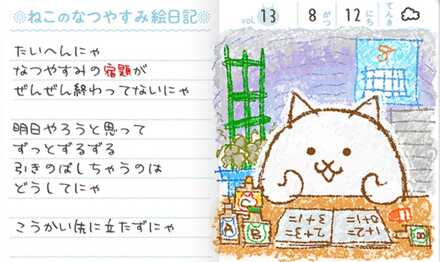 ※ねこのなつやすみ絵日記※
vol. 13 8がつ 12にち てんき
たいへんにゃ
なつやすみの宿題が
ぜんぜん終わってないにゃ
明日やろうと思って
ずっとずるずる
引きのばしちゃうのは
どうしてにゃ
こうかい先に立たずにゃ
0+1=
1+2=
3+1=
2+3=